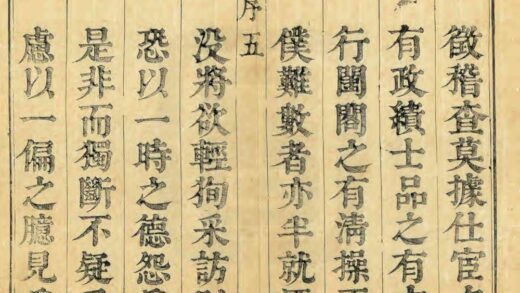 徵稽查莫據仕宦
有政績士品之有
行閨閤之有清操
僕難數者亦半就
序五
没將欲輕徇采訪
恐以一時之德怨
是非而獨斷不疑
慮以一偏之臆見